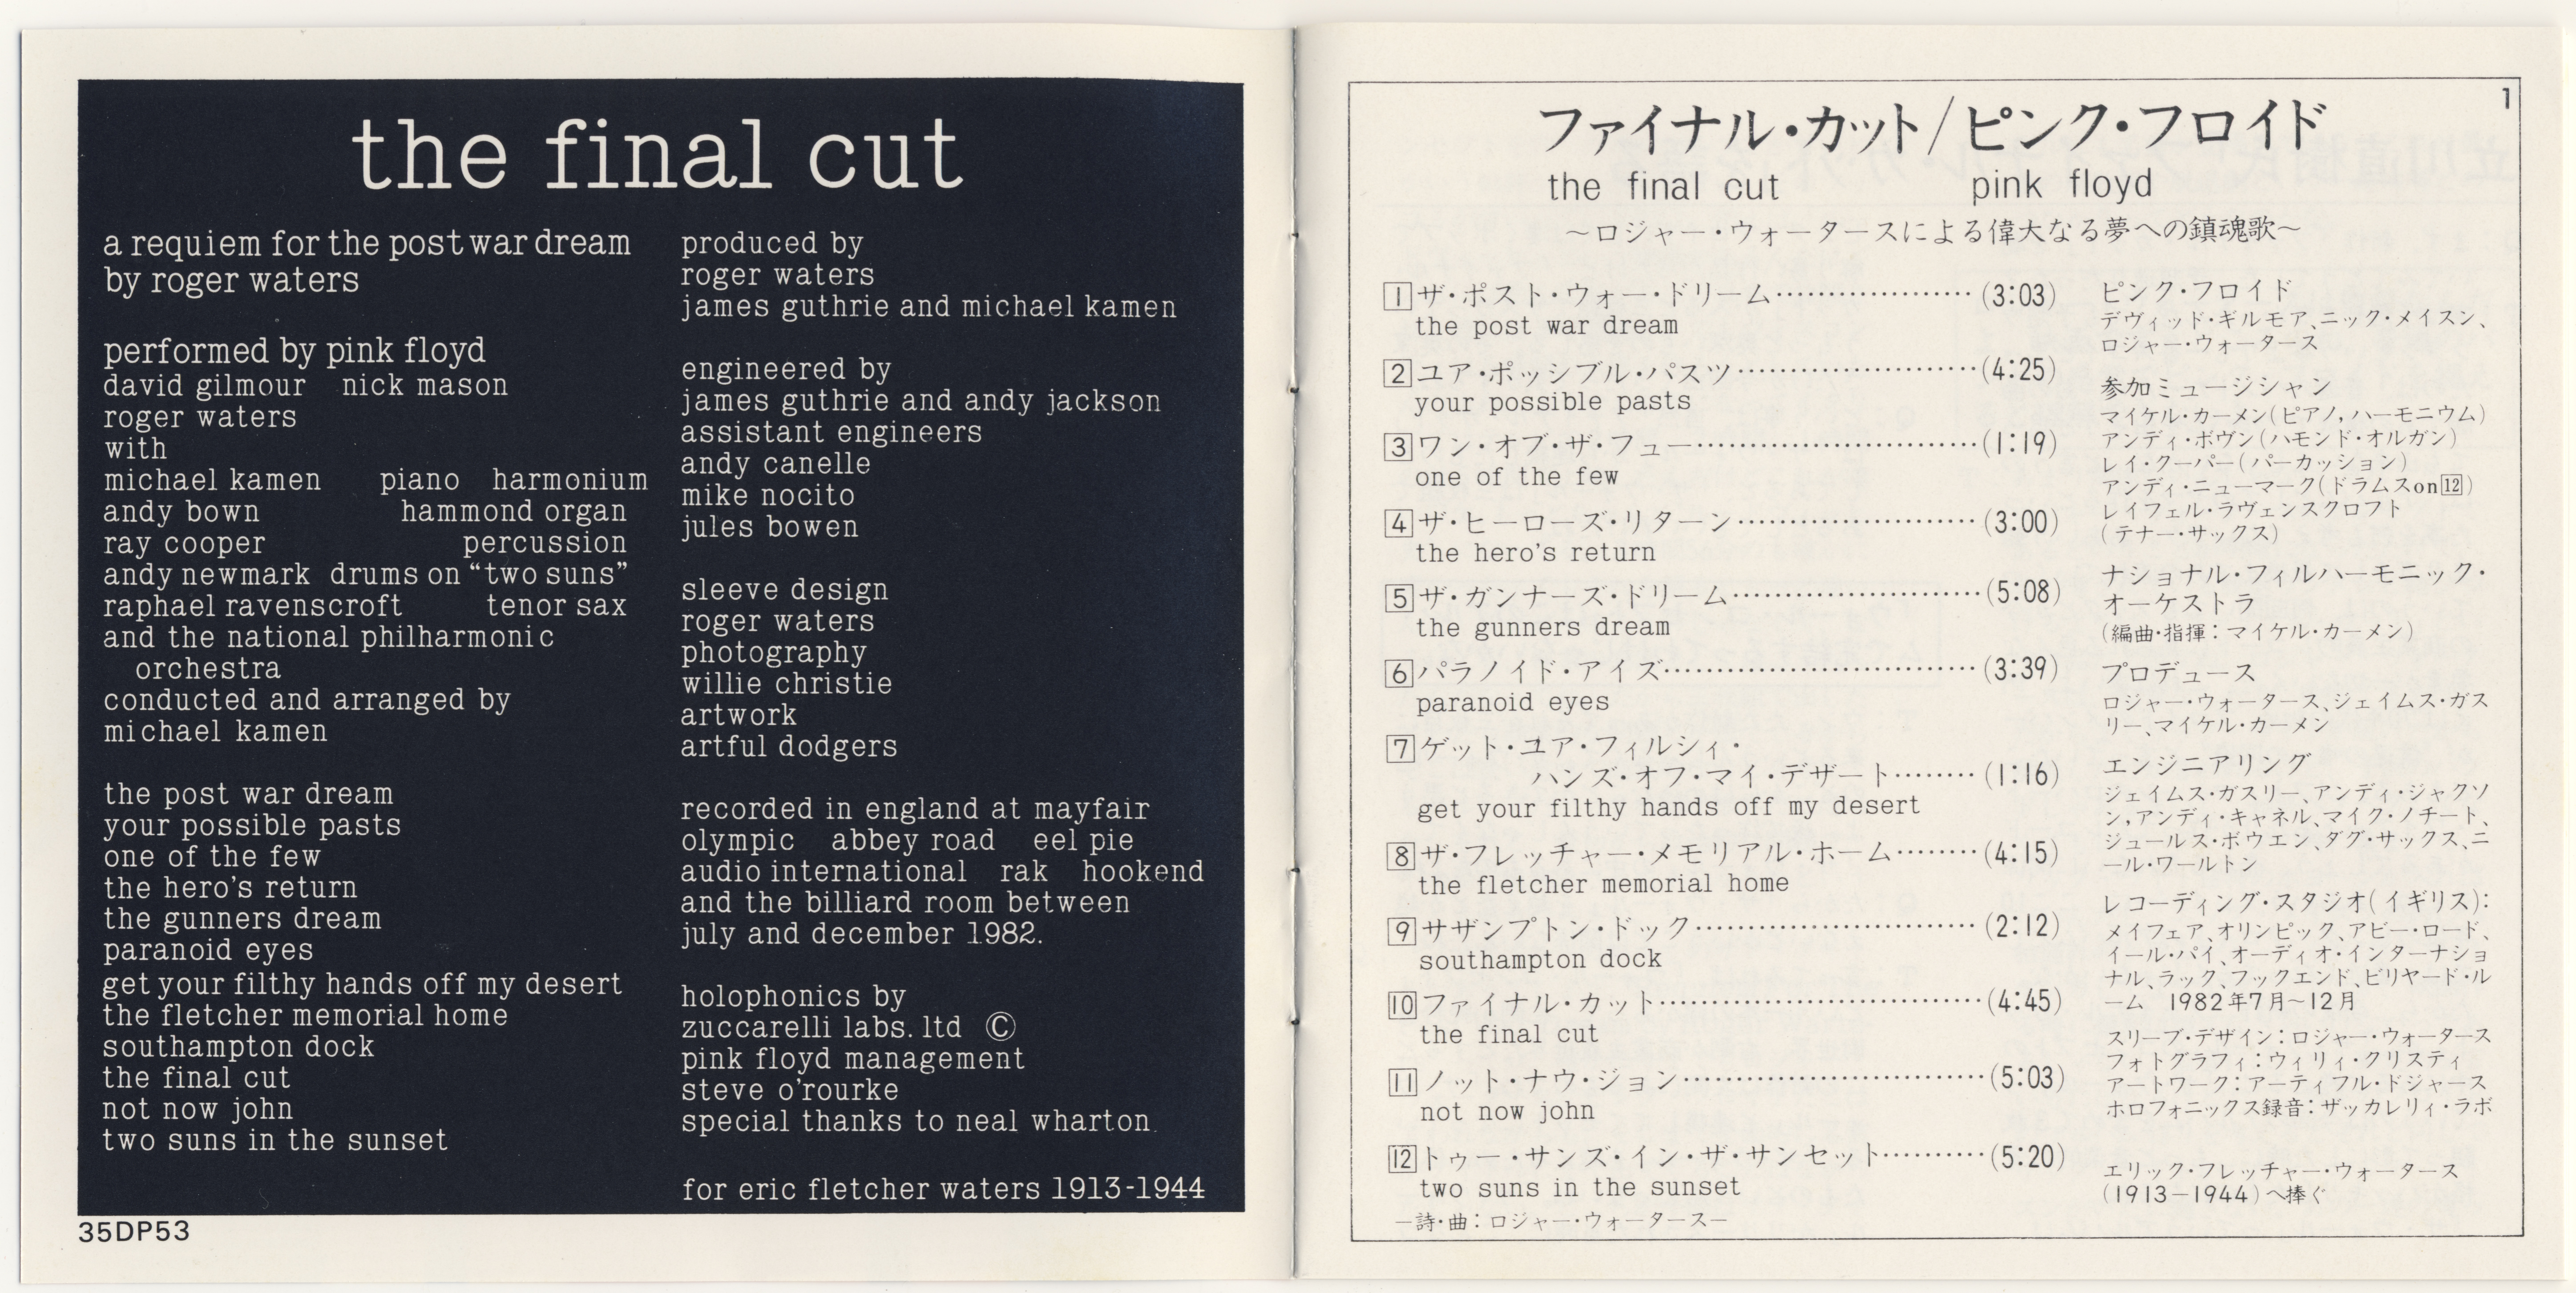 the final cut
a requiem for the post war dream
by roger waters
performed by pink floyd
david gilmour nick mason
roger waters
with
michael kamen piano harmonium
andy bown hammond organ
ray cooper percussion
andy newmark drums on “two suns”
raphael ravenscroft tenor sax
and the national philharmonic
orchestra
conducted and arranged by
michael kamen
the post war dream
your possible pasts
one of the few
the hero's return
the gunners dream
paranoid eyes
get your filthy hands off my desert
the fletcher memorial home
southampton dock
the final cut
not now john
two suns in the sunset
produced by
roger waters
james guthrie and michael kamen
engineered by
james guthrie and andy jackson
assistant engineers
andy canelle
mike nocito
jules bowen
sleeve design
roger waters
photography
willie christie
artwork
artful dodgers
recorded in england at mayfair
olympic abbey road eel pie
audio international rak hookend
and the billiard room between
july and december 1982.
holophonics by
zuccarelli labs. ltd ©
pink floyd management
steve o'rourke
special thanks to neal wharton.
for eric fletcher waters 1913-1944
35DP53
1
ファイナル・カット/ピンク・フロイド
the final cut pink floyd
～ロジャー・ウォータースによる偉大なる夢への鎮魂歌～
1 ザ・ポスト・ウォー・ドリーム…………………(3:03)
the post war dream
2 ユア・ポッシブル・パスツ……………………(4:25)
your possible pasts
3 ワン・オブ・ザ・フュー………………………(1:19)
one of the few
4 ザ・ヒーローズ・リターン……………………(3:00)
the hero's return
5 ザ・ガンナーズ・ドリーム……………………(5:08)
the gunners dream
6 パラノイド・アイズ……………………………(3:39)
paranoid eyes
7 ゲット・ユア・フィルシィ・
ハンズ・オフ・マイ・デザート………(1:16)
get your filthy hands off my desert
8 ザ・フレッチャー・メモリアル・ホーム………(4:15)
the fletcher memorial home
9 サザンプトン・ドック…………………………(2:12)
southampton dock
10 ファイナル・カット……………………………(4:45)
the final cut
11 ノット・ナウ・ジョン…………………………(5:03)
not now john
12 トゥー・サンズ・イン・ザ・サンセット…………(5:20)
two suns in the sunset
—詩・曲：ロジャー・ウォータース—
ピンク・フロイド
デヴィッド・ギルモア、ニック・メイスン、
ロジャー・ウォータース
参加ミュージシャン
マイケル・カーメン(ピアノ,ハーモニウム)
アンディ・ボヴン(ハモンド・オルガン)
レイ・クーパー(パーカッション)
アンディ・ニューマーク(ドラムスon12)
レイフェル・ラヴェンスクロフト
(テナー・サックス)
ナショナル・フィルハーモニック・
オーケストラ
(編曲・指揮：マイケル・カーメン)
プロデュース
ロジャー・ウォータース、ジェイムス・ガス
リー、マイケル・カーメン
エンジニアリング
ジェイムス・ガスリー、アンディ・ジャクソ
ン,アンディ・キャネル、マイク・ノチート、
ジュールス・ボウエン、ダグ・サックス、ニ
ール・ワールトン
レコーディング・スタジオ(イギリス)：
メイフェア、オリンピック、アビー・ロード、
イール・パイ、オーディオ・インターナショ
ナル、ラック、フックエンド、ビリヤード・ル
ーム 1982年7月～12月
スリーブ・デザイン：ロジャー・ウォータース
フォトグラフィ：ウィリィ・クリスティ
アートワーク：アーティフル・ドジャース
ホロフォニックス録音：ザッカレリィ・ラボ
エリック・フレッチャー・ウォータース
(1913—1944)へ捧ぐ